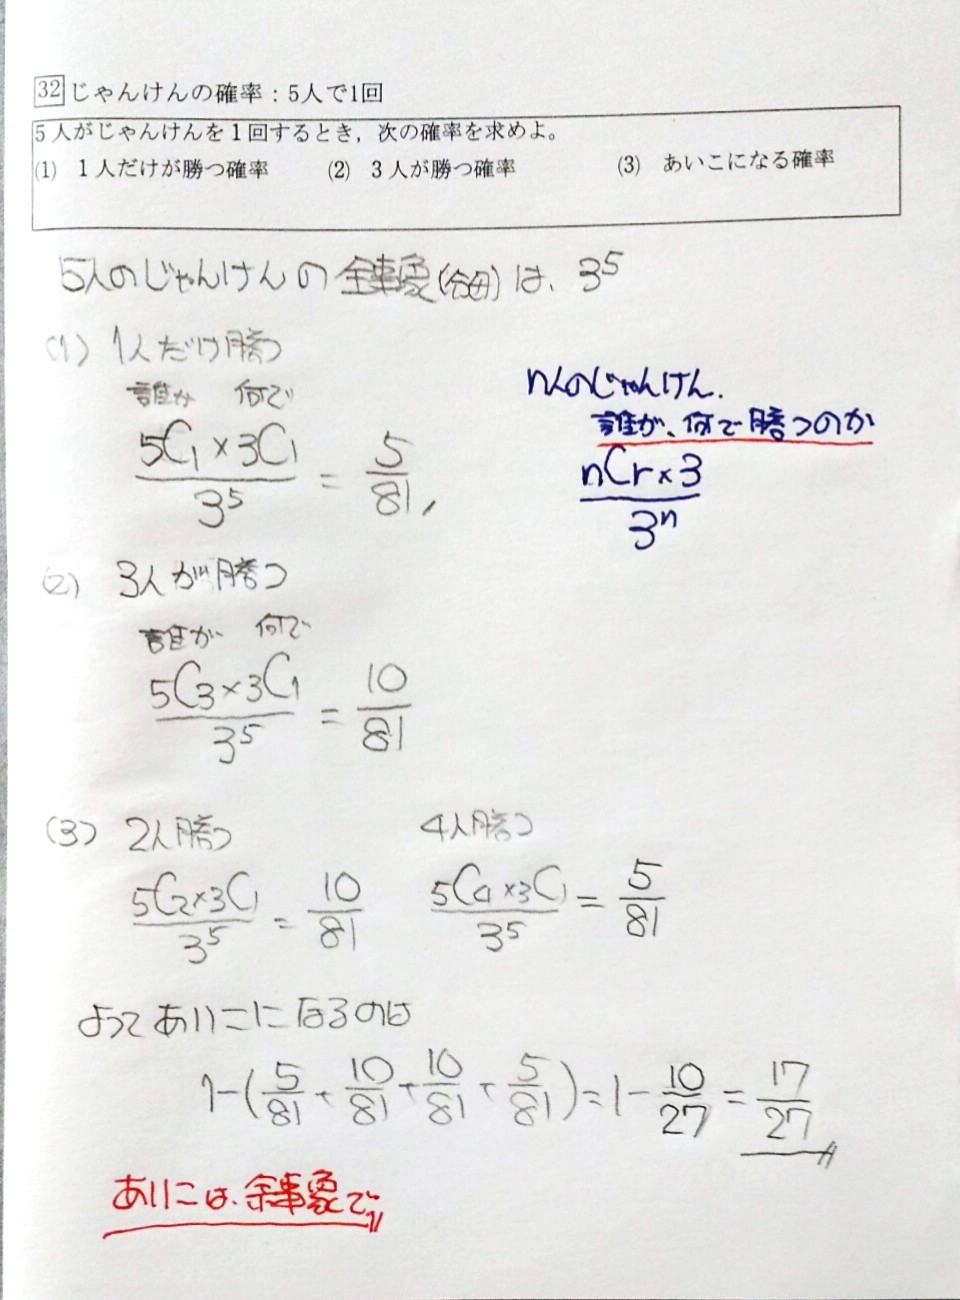 32 じゃんけんの確率：5人で1回
5人がじゃんけんを1回するとき，次の確率を求めよ。
(1) 1人だけが勝つ確率 (2) 3人が勝つ確率 (3) あいこになる確率
5人のじゃんけんの全事象(分母)は、3^5
(1) 1人だけ勝つ
誰が 何で
5C1×3C1/3^5 = 5/81,
n人のじゃんけん.
誰が、何で勝つのか
nCr×3/3^n
(2) 3人が勝つ
誰が 何で
5C3×3C1/3^5 = 10/81
(3) 2人勝つ 4人勝つ
5C2×3C1/3^5 = 10/81 5C4×3C1/3^5 = 5/81
よってあいこになるのは
1-(5/81+10/81+10/81+5/81)=1-10/27=17/27
あいこは、余事象で